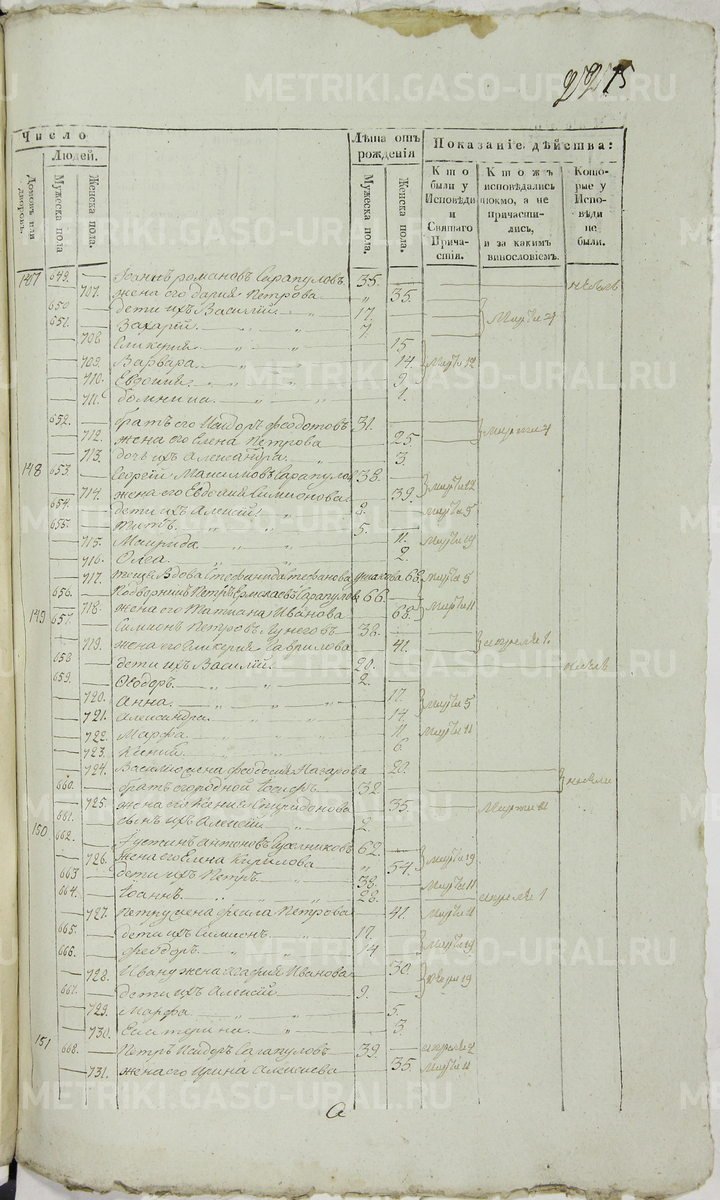 2275
Число
Людей.
Домовъ или дворовъ.
Мужеска пола
Женска пола.
Лѣта отъ рожденія
Мужеска пола.
Женска пола.
Показаніе дѣйства:
Кто были у Исповѣди и Святаго Причастія.
Кто жъ исповѣдались токмо, а не причастились, и за какимъ винословіемъ.
Которые у Исповѣди не были.
147 649. Іоаннъ романовъ Сарапуловъ 35.
707. жена его дарія Петрова 35.
650 дети ихъ Василій 17.
651. Захарій 7. Марта 4
708. Гликерия 15.
709. Варвара 14. Марта 12
710. Евдокия 9
711. домнина 1.
652. братъ его Исидоръ федотовъ 31.
712. жена его Елена Петрова 25 Марта 4
713. дочь ихъ Александра 3.
148 653. Георгий Максимовъ Сарапуловъ 38.
714. жена его Евдокия Симионова 39. Марта 12
654. дети ихъ Алексій 8. Марта 5
655. Титъ 5.
715. Маврида 11. Марта 19
716. Олга 2.
717. теща Вдова Стефанида Стефанова 68. Марта 5
656. Подворникъ Петръ Сарапуловъ 66.
718. жена его Татиана Иванова 68. Марта 11
149 657. Симионъ Петровъ Лунеговъ 38.
719. жена его Гликерия Гаврилова 41. апреля 1.
658 дети ихъ Василій 20.
659. Ѳеодоръ 2.
720. Анна 17.
721. Александра 14. Марта 5
722. Марфа 11. Марта 11
723. Ксения 6
724. Василью жена феодосия Назарова 20.
660. братъ огородной Іосифъ 32.
725. жена его Ксения Спиридонова 35. Марта 11
661. сынъ ихъ Алексій 2.
150 662. Іустинъ антоновъ 62.
726. жена его Елина Кирилова 54. Марта 19
663 дети ихъ Петръ 38. Марта 11
664. Іоаннъ 28. апреля 1
727. Петру жена фекла Петрова 41. Марта 11
665. дети ихъ Симионъ 17.
666. феодоръ 14 Марта 19
728. Ивану жена Мария Иванова 30.
667. дети ихъ Алексій 9.
729. Марфа 5.
730. Екатерина 3.
151 668. Петръ Исидоръ Сарапуловъ 39. апреля 4
731. жена его Ирина Алексиева 35. Марта 11
METRIKI.GASO-URAL.RU